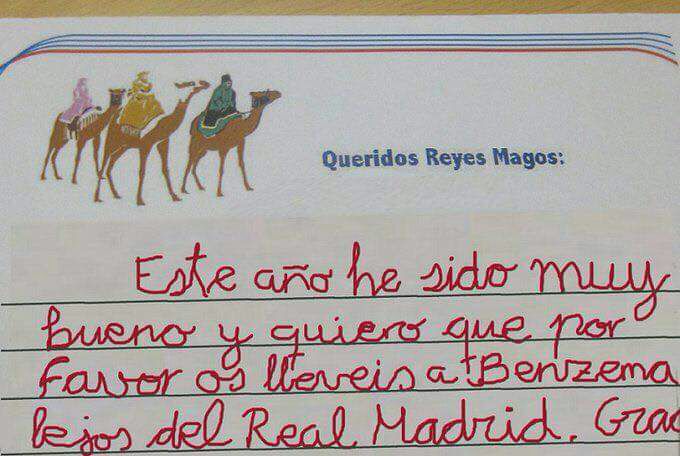 Queridos Reyes Magos:
Este año he sido muy
bueno y quiero que por
favor os lleveis a Benzema
lejos del Real Madrid. Grac